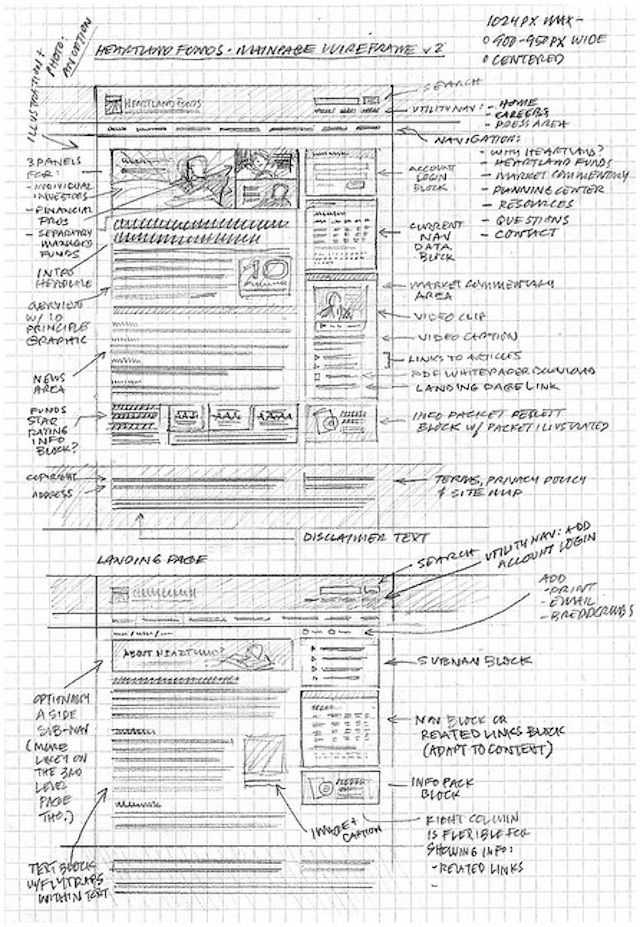 HEARTLAND FUNDS - MAINPAGE WIREFRAME v2
1024PX MAX -
900-950PX WIDE
CENTERED
ILLUSTRATION +
PHOTO:
AN OPTION
SEARCH
HEARTLAND FUNDS
UTILITY NAV:
- HOME
- CAREERS
- PRESS AREA
NAVIGATION:
- WHY HEARTLAND?
- HEARTLAND FUNDS
- MARKET COMMENTARY
- PLANNING CENTER
- RESOURCES
- QUESTIONS
- CONTACT
3 PANELS
FOR:
- INDIVIDUAL
INVESTORS
- FINANCIAL
PROS
- SEPARATELY
MANAGED
FUNDS
INTRO
HEADLINE
OVERVIEW
W/ 10
PRINCIPLE
GRAPHIC
10
NEWS
AREA
FUNDS
STAR
RATING
INFO
BLOCK?
ACCOUNT
LOGIN
BLOCK
CURRENT
NAV
DATA
BLOCK
MARKET COMMENTARY
AREA
VIDEO CLIP
VIDEO CAPTION
LINKS TO ARTICLES
PDF WHITEPAPER DOWNLOAD
LANDING PAGE LINK
INFO PACKET
BLOCK W/ PACKET ILLUSTRATED
COPYRIGHT
ADDRESS
TERMS, PRIVACY POLICY
& SITE MAP
DISCLAIMER TEXT
LANDING PAGE
SEARCH
UTILITY NAV: ADD
ACCOUNT LOGIN
ADD
- PRINT
- EMAIL
- BREADCRUMBS
ABOUT HEARTLAND?
SUBNAV BLOCK
OPTIONALLY
A SIDE
SUB-NAV
(MORE
LIKELY ON
THE 3RD
LEVEL
PAGE
THO.)
NAV BLOCK OR
RELATED LINKS BLOCK
(ADAPT TO CONTEXT)
INFO PACK
BLOCK
IMAGE +
CAPTION
RIGHT COLUMN
IS FLEXIBLE FOR
SHOWING INFO:
- RELATED LINKS
-
TEXT BLOCK
W/ FLYTRAPS
WITHIN TEXT